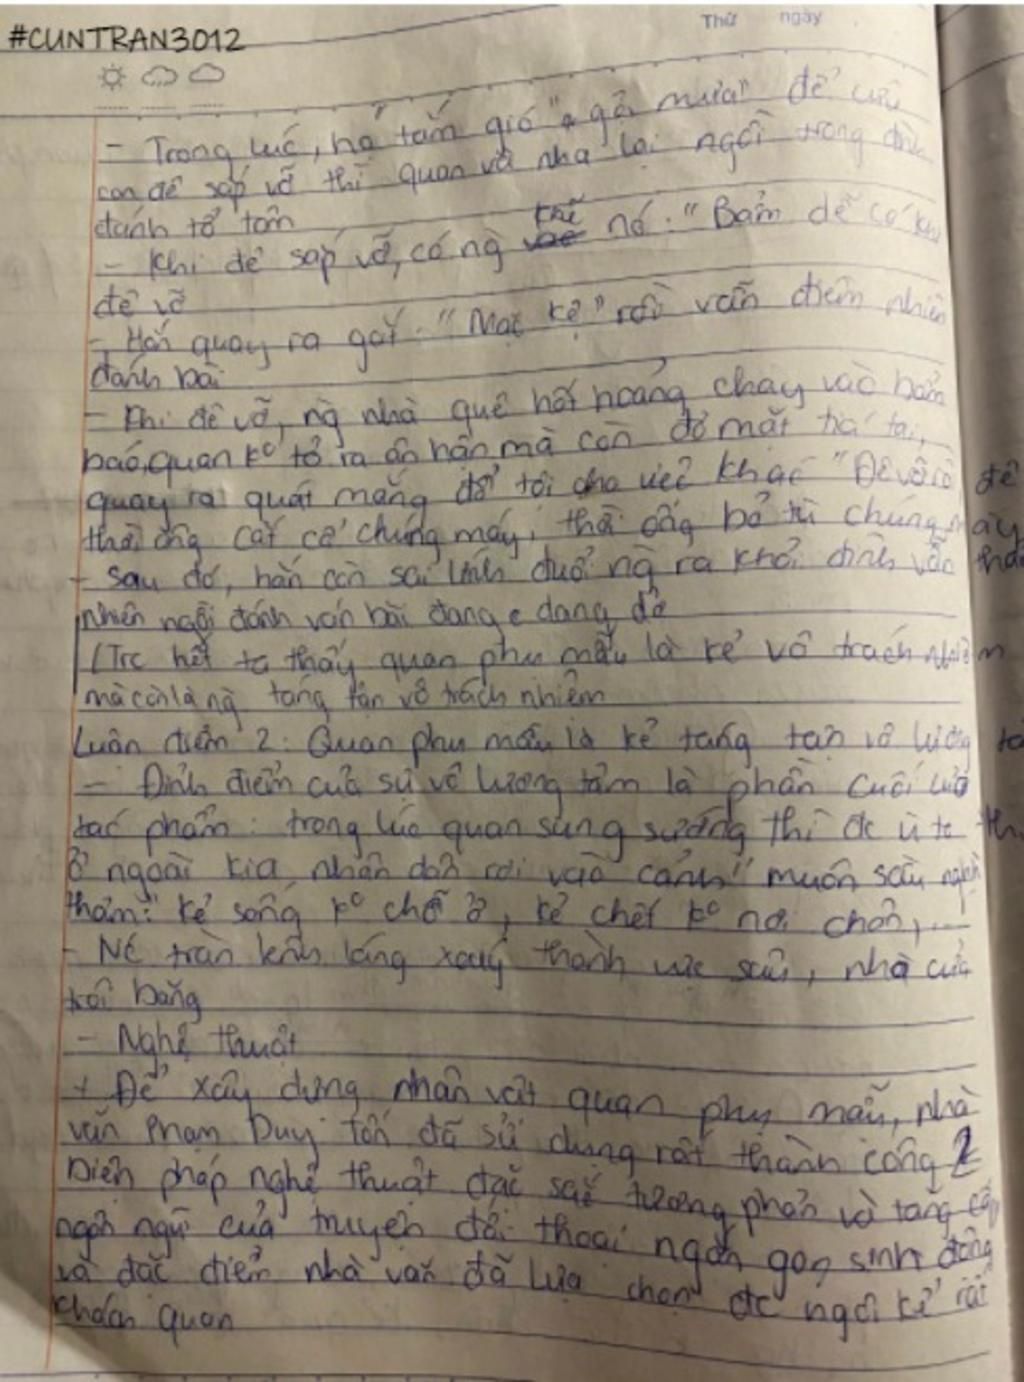 #CUNTRAN3012
Thứ ngày
- Trong lúc, họ tắm gió gội mưa" để cứu
con đê sắp vỡ thì quan và nha lại ngồi trong đình
đánh tổ tôm
- Khi đê sắp vỡ, có ng khẽ nó: "Bẩm dễ có khi
đê vỡ
- Hắn quay ra gắt: "Mặc kệ" rồi vẫn điềm nhiên
đánh bài
- Khi đê vỡ, ng nhà quê hốt hoảng chạy vào bẩm
báo, quan ko tỏ ra ân hận mà còn đỏ mặt tía tai,
quay ra quát mắng đổ tội cho việc khác "Đê vỡ rồi đê
thời ông cắt cổ chúng mày, thời ông bỏ tù chúng mày
- Sau đó, hắn còn sai lính đuổi ng ra khỏi đình vẫn thản
nhiên ngồi đánh ván bài đang dang dở
(Trc hết ta thấy quan phụ mẫu là kẻ vô trách nhiệm
mà còn là ng táng tận vô trách nhiệm
Luận điểm 2: Quan phụ mẫu là kẻ táng tận vô lương tâ
- Đỉnh điểm của sự vô lương tâm là phần cuối
tác phẩm: trong lúc quan sung sướng thì đc ù to th
ở ngoài kia nhân dân rơi vào cảnh "muôn sầu nghìn
thảm": kẻ sống ko chỗ ở, kẻ chết ko nơi chôn, ....
- Nc tràn lênh láng xoáy thành vực sâu, nhà cửa
trôi băng
- Nghệ thuật
+ Để xây dựng nhân vật quan phụ mẫu, nhà
văn Phạm Duy Tốn đã sử dụng rất thành công 2
biện pháp nghệ thuật đặc sắc tương phản và tăng cấp
ngôn ngữ của truyện đối thoại ngắn gọn sinh động
và đặc điểm nhà văn đã lựa chọn đc ngôi kể rất
khách quan